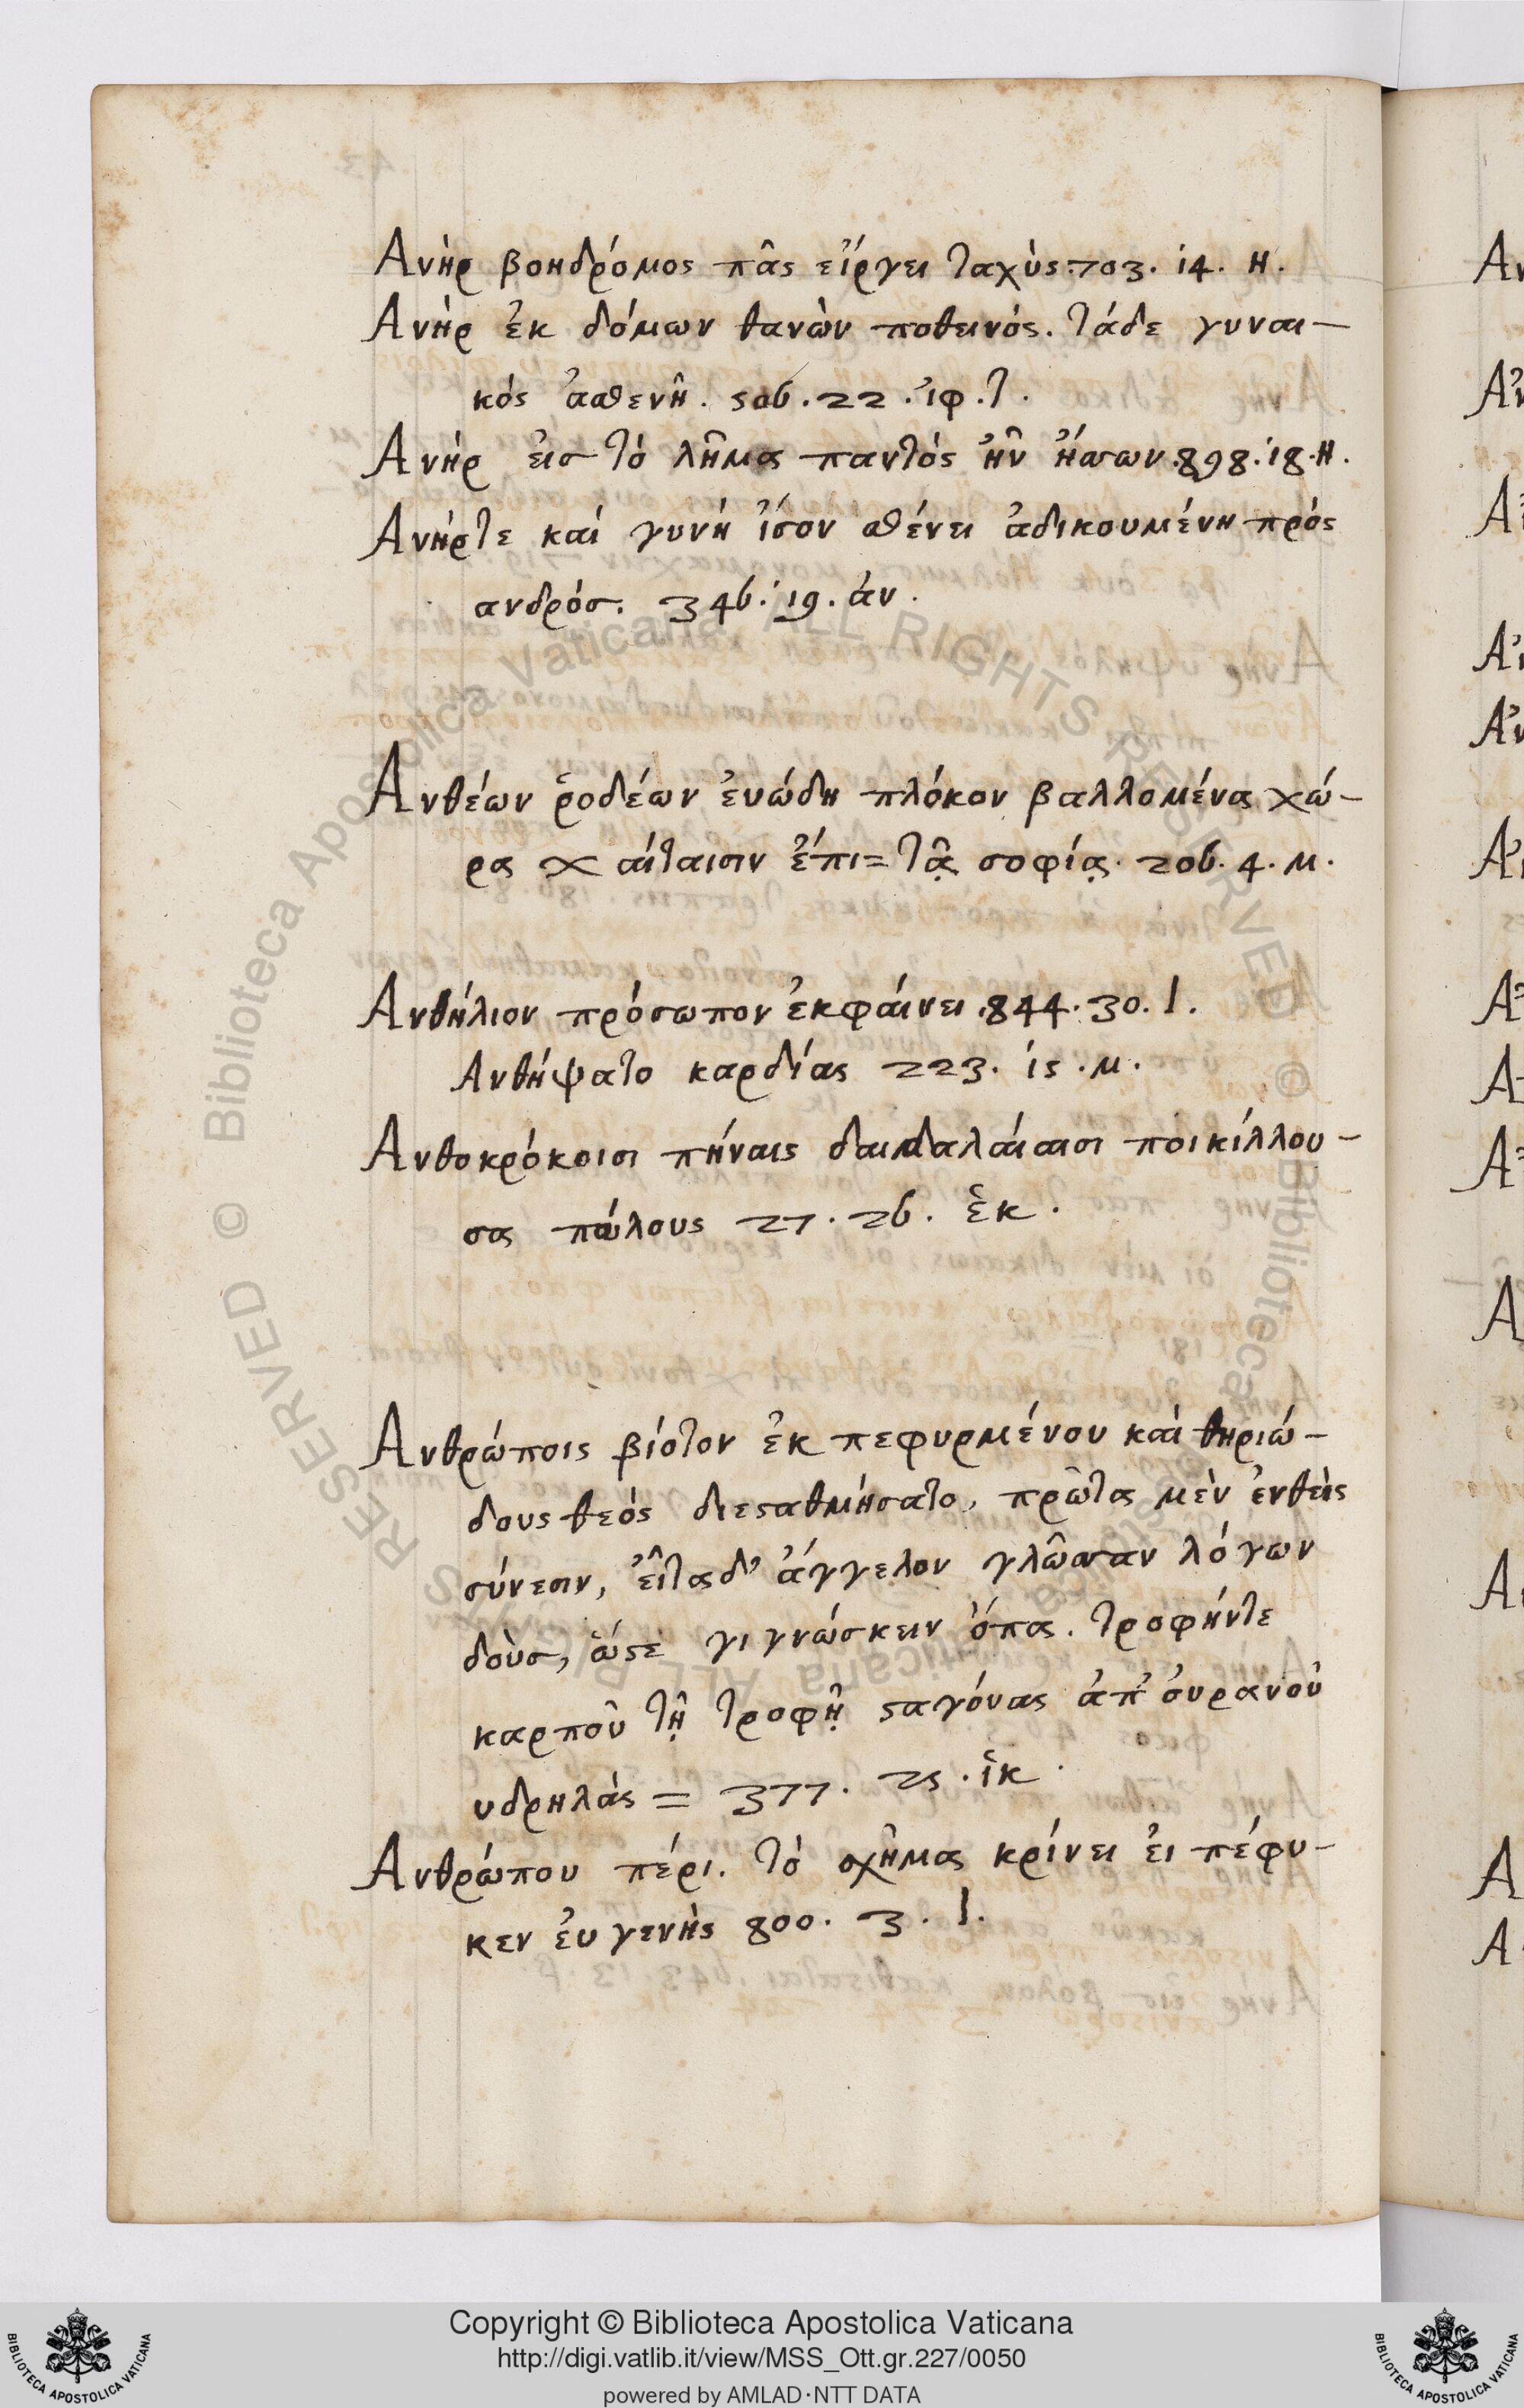 Ανὴρ βοηδρόμος πᾶς εἴργει ταχὺς. 703. 14. Η.
Ανὴρ ἐκ δόμων θανὼν ποθεινός. τάδε γυναι-
κός ἀσθενῆ. 506. 22. ἰφ. τ.
Ανὴρ ἐισ τὸ λῆμα παντὸς ἦν ἥσσων. 898. 18. Η.
Ανήρτε καὶ γυνή ἴσον σθένει ἀδικουμένη πρός
ανδρόσ. 346. 19. ἀν.
Ανθέων ῥοδέων ἐυώδη πλόκον βαλλομένα χώ-
ρα χ αίταισιν ἔπι = τᾷ σοφίᾳ. 206. 4. μ.
Ανθήλιον πρόσωπον ἐκφαίνει. 844. 30. Ι.
Ανθήψατο καρδίας 223. 15. μ.
Ανθοκρόκοισι πήναις δαιδαλαίαισι ποικίλλου-
σα πώλους 27. 26. ἑκ.
Ανθρώποις βίοτον ἐκ πεφυρμένου καὶ θηριώ-
δους θεός διεσταθμήσατο, πρῶτα μὲν ἐνθεὶς
σύνεσιν, εἶτα δ' ἄγγελον γλῶσσαν λόγων
δοὺσ, ὥστε γιγνώσκειν ὄπα. τροφήντε
καρποῦ τῇ τροφῇ σταγόνας ἀπ' ὀυρανοῦ
υδρηλὰς = 377. 25. ἱκ.
Ανθρώπου πέρι. τὸ σχῆμα κρίνει ἐι πέφυ-
κεν ἐυγενὴς 800. 3. Ι.
Biblioteca Apostolica Vaticana ALL RIGHTS RESERVED ©
Copyright © Biblioteca Apostolica Vaticana
http://digi.vatlib.it/view/MSS_Ott.gr.227/0050
powered by AMLAD·NTT DATA
BIBLIOTECA APOSTOLICA VATICANA
BIBLIOTECA APOSTOLICA VATICANA